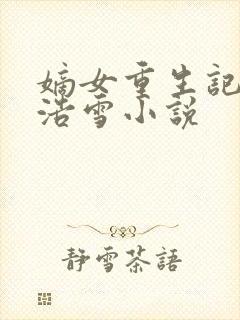 嫡女重生記
浩雪小說
靜雪茶語